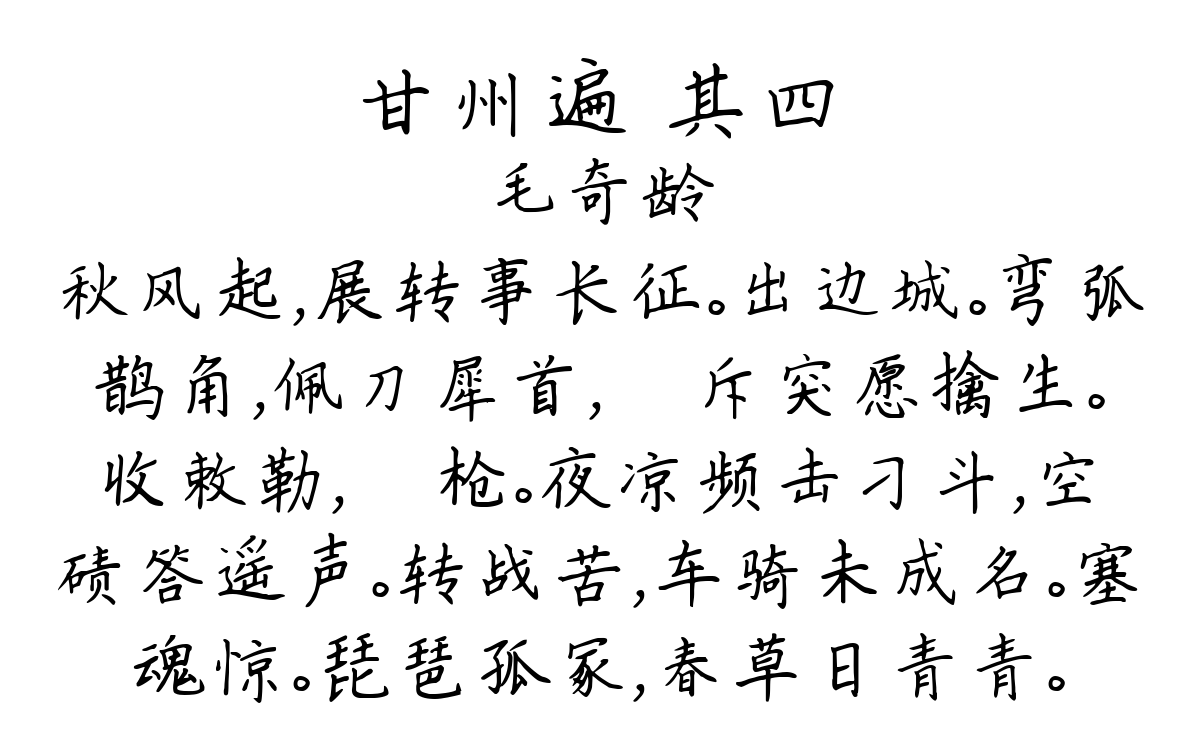 甘州遍 其四
毛奇龄
秋风起,展转事长征。出边城。弯弧
鹊角,佩刀犀首, 斥突愿擒生。
收敕勒, 枪。夜凉频击刁斗,空
碛答遥声。转战苦,车骑未成名。塞
魂惊。琵琶孤冢,春草日青青。